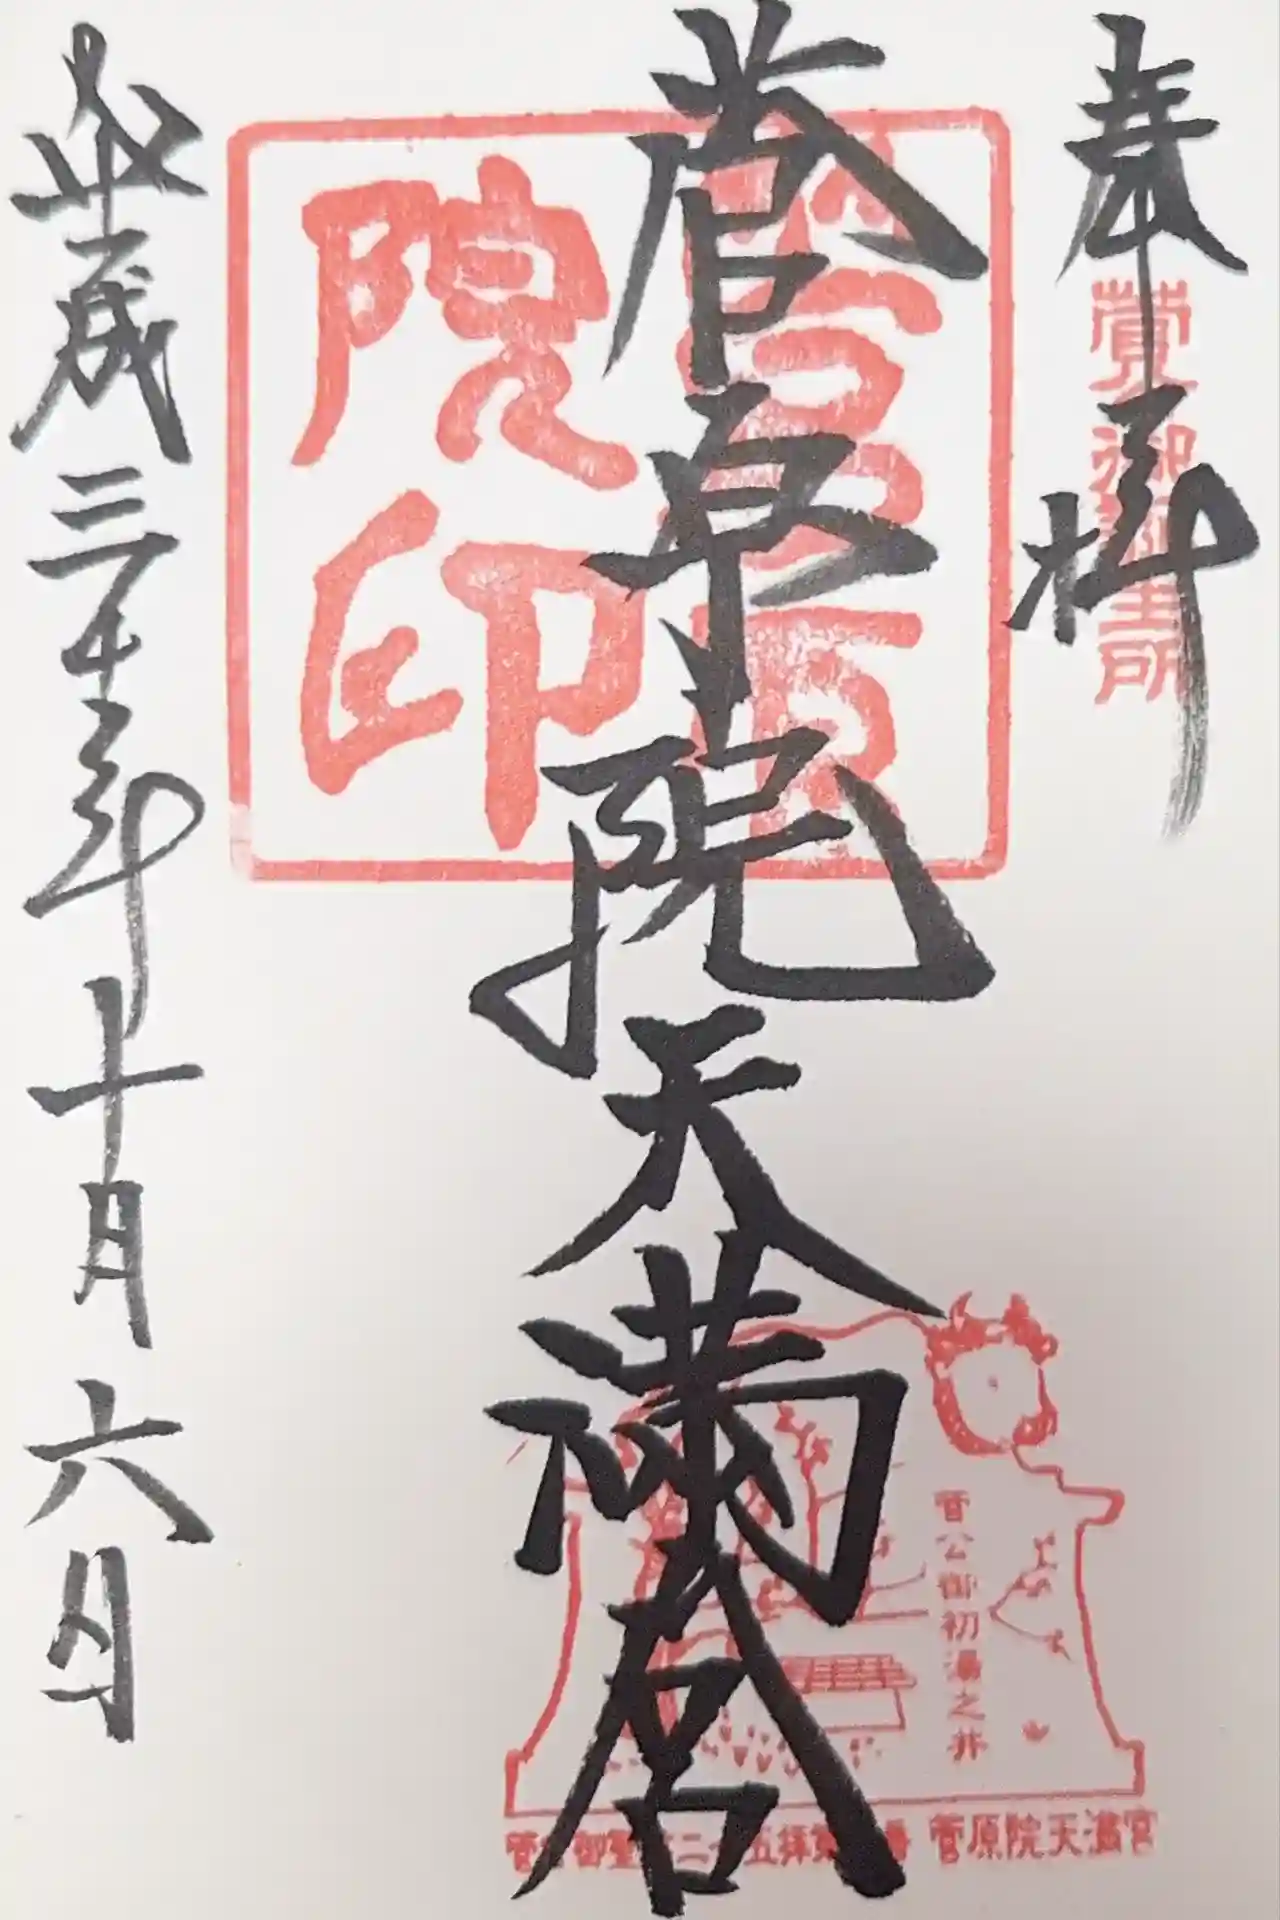 奉拝
菅公御誕生所
菅原院天満宮
菅原
院印
平成三十年十月六日
菅公御初湯之井
菅公御聖蹟二十五拝第一番 菅原院天満宮